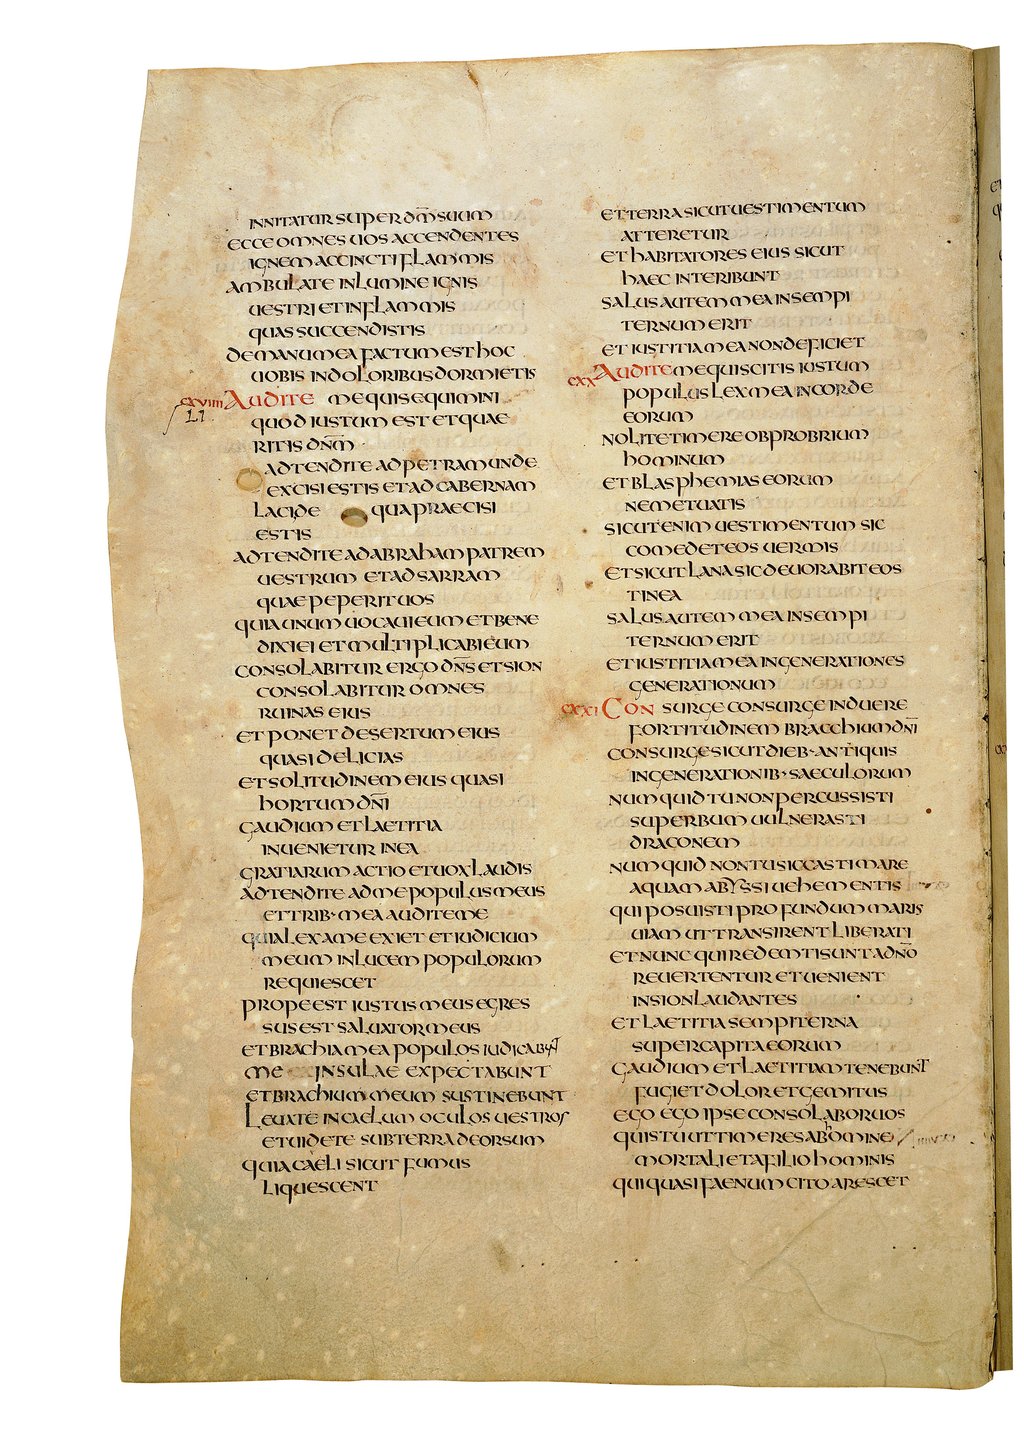 INNITATUR SUPER DM̄ SUUM
ECCE OMNES UOS ACCENDENTES
IGNEM ACCINCTI FLAMMIS
AMBULATE IN LUMINE IGNIS
UESTRI ET IN FLAMMIS
QUAS SUCCENDISTIS
DE MANU MEA FACTUM EST HOC
UOBIS IN DOLORIBUS DORMIETIS
CXVIIII AUDITE ME QUI SEQUIMINI
LI
QUOD IUSTUM EST ET QUAE
RITIS DN̄M̄
ADTENDITE AD PETRAM UNDE
EXCISI ESTIS ET AD CABERNAM
LACIDE QUA PRAECISI
ESTIS
ADTENDITE AD ABRAHAM PATREM
UESTRUM ET AD SARRAM
QUAE PEPERIT UOS
QUIA UNUM UOCAUI EUM ET BENE
DIXI EI ET MULTIPLICABI EUM
CONSOLABITUR ERGO DN̄S ET SION
CONSOLABITUR OMNES
RUINAS EIUS
ET PONET DESERTUM EIUS
QUASI DELICIAS
ET SOLITUDINEM EIUS QUASI
HORTUM DN̄I
GAUDIUM ET LAETITIA
INUENIETUR IN EA
GRATIARUM ACTIO ET UOX LAUDIS
ADTENDITE AD ME POPULUS MEUS
ET TRIB· MEA AUDITE ME
QUIA LEX A ME EXIET ET IUDICIUM
MEUM IN LUCEM POPULORUM
REQUIESCET
PROPE EST IUSTUS MEUS EGRES
SUS EST SALUATOR MEUS
ET BRACHIA MEA POPULOS IUDICABUNT
ME INSULAE EXPECTABUNT
ET BRACHIUM MEUM SUSTINEBUNT
LEUATE IN CAELUM OCULOS UESTROS
ET UIDETE SUB TERRA DEORSUM
QUIA CAELI SICUT FUMUS
LIQUESCENT
ET TERRA SICUT UESTIMENTUM
ATTERETUR
ET HABITATORES EIUS SICUT
HAEC INTERIBUNT
SALUS AUTEM MEA IN SEMPI
TERNUM ERIT
ET IUSTITIA MEA NON DEFICIET
CXX AUDITE ME QUI SCITIS IUSTUM
POPULUS LEX MEA IN CORDE
EORUM
NOLITE TIMERE OBPROBRIUM
HOMINUM
ET BLASPHEMIAS EORUM
NE METUATIS
SICUT ENIM UESTIMENTUM SIC
COMEDET EOS UERMIS
ET SICUT LANA SIC DEUORABIT EOS
TINEA
SALUS AUTEM MEA IN SEMPI
TERNUM ERIT
ET IUSTITIA MEA IN GENERATIONES
GENERATIONUM
CXXI CONSURGE CONSURGE INDUERE
FORTITUDINEM BRACCHIUM DN̄I
CONSURGE SICUT DIEB· ANTIQUIS
IN GENERATIONIB· SAECULORUM
NUMQUID TU NON PERCUSSISTI
SUPERBUM UULNERASTI
DRACONEM
NUMQUID NON TU SICCASTI MARE
AQUAM ABYSSI UEHEMENTIS
QUI POSUISTI PROFUNDUM MARIS
UIAM UT TRANSIRENT LIBERATI
ET NUNC QUI REDEMTI SUNT A DN̄O
REUERTENTUR ET UENIENT
IN SION LAUDANTES
ET LAETITIA SEMPITERNA
SUPER CAPITA EORUM
GAUDIUM ET LAETITIAM TENEBUNT
FUGIET DOLOR ET GEMITUS
EGO EGO IPSE CONSOLABOR UOS
QUIS TU UT TIMERES AB HOMINE
MORTALI ET A FILIO HOMINIS
QUI QUASI FAENUM CITO ARESCET